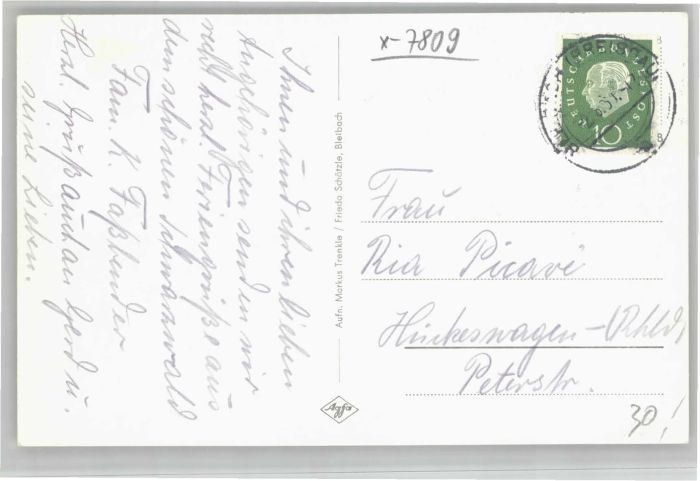 x-7809
Ihnen und ihren lieben
Angehörigen senden wir
recht herzl. Feriengrüße aus
dem schönen Schwarzwald
Fam. K. Faßbender
Herzl. Grüß auch an Gerd u.
seine Lieben.
Aufn. Markus Trenkle / Frieda Schätzle, Bleibach
Agfa
DEUTSCHE BUNDESPOST
10
8
8
Frau
Ria Picavé
Hückeswagen-(Rhld)
Peterstr.
30,!